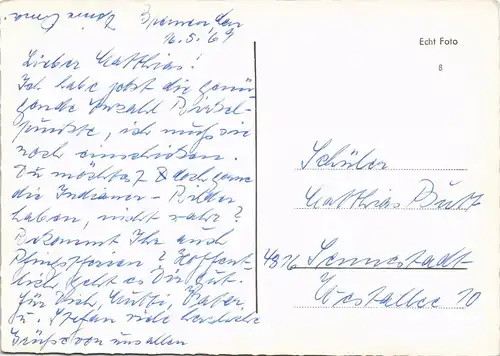 Deine Oma.
Bremen, den
16.5.69
Lieber Matthias!
Ich habe jetzt die genü-
gende Anzahl Bärsel-
punkte, ich muß sie
noch einschicken.
Du möchtest doch gerne
die Indianer-Bilder
haben, nicht wahr?
Bekommt Ihr auch
Pfingstferien? Hoffent-
lich geht es Dir gut.
Für Dich, Mutti, Vater
u. Stefan viele herzliche
Grüße von uns allen
Echt Foto
8
Schüler
Matthias
4816 Sennestadt
Westallee 10